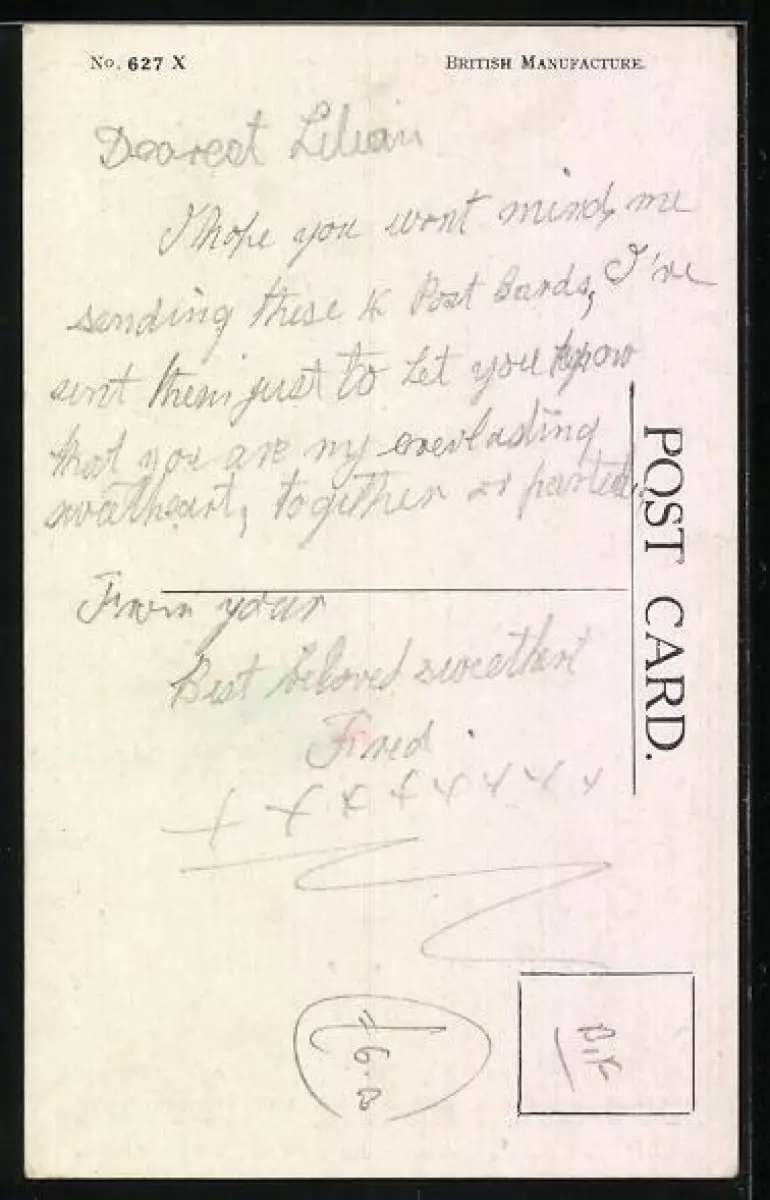 No. 627 X
BRITISH MANUFACTURE.
Dearest Lilian
I hope you wont mind, me
sending these Post Cards, I've
sent them just to let you know
that you are my everlasting
sweatheart, together or parted.
From your
Best beloved sweethert
Fred.
x x x x x x x x
POST CARD.